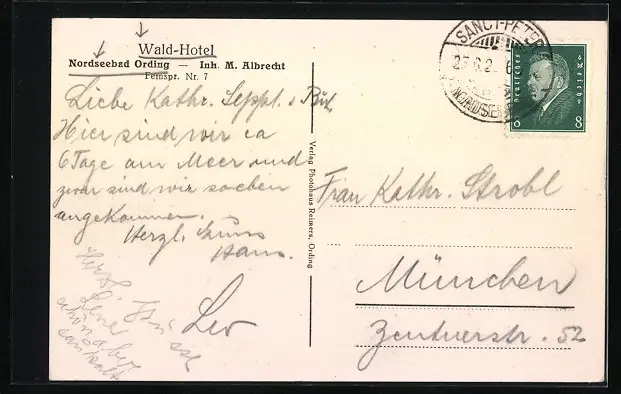 Wald-Hotel
Nordseebad Ording — Inh. M. Albrecht
Fernspr. Nr. 7
Liebe Kathr. Seppl. u.
Hier sind wir ca
6 Tage am Meer und
zwar sind wir soeben
angekommen.
Herzl. Grüss
Hans.
Herzl. Grüsse
Lene
schön aber
saukalt
Leo
Verlag Photohaus Reimers, Ording
SANCT-PETER
NORDSEE
Deutsches Reich
8 8
Frau Kathr. Strobl
München
Zentnerstr. 52